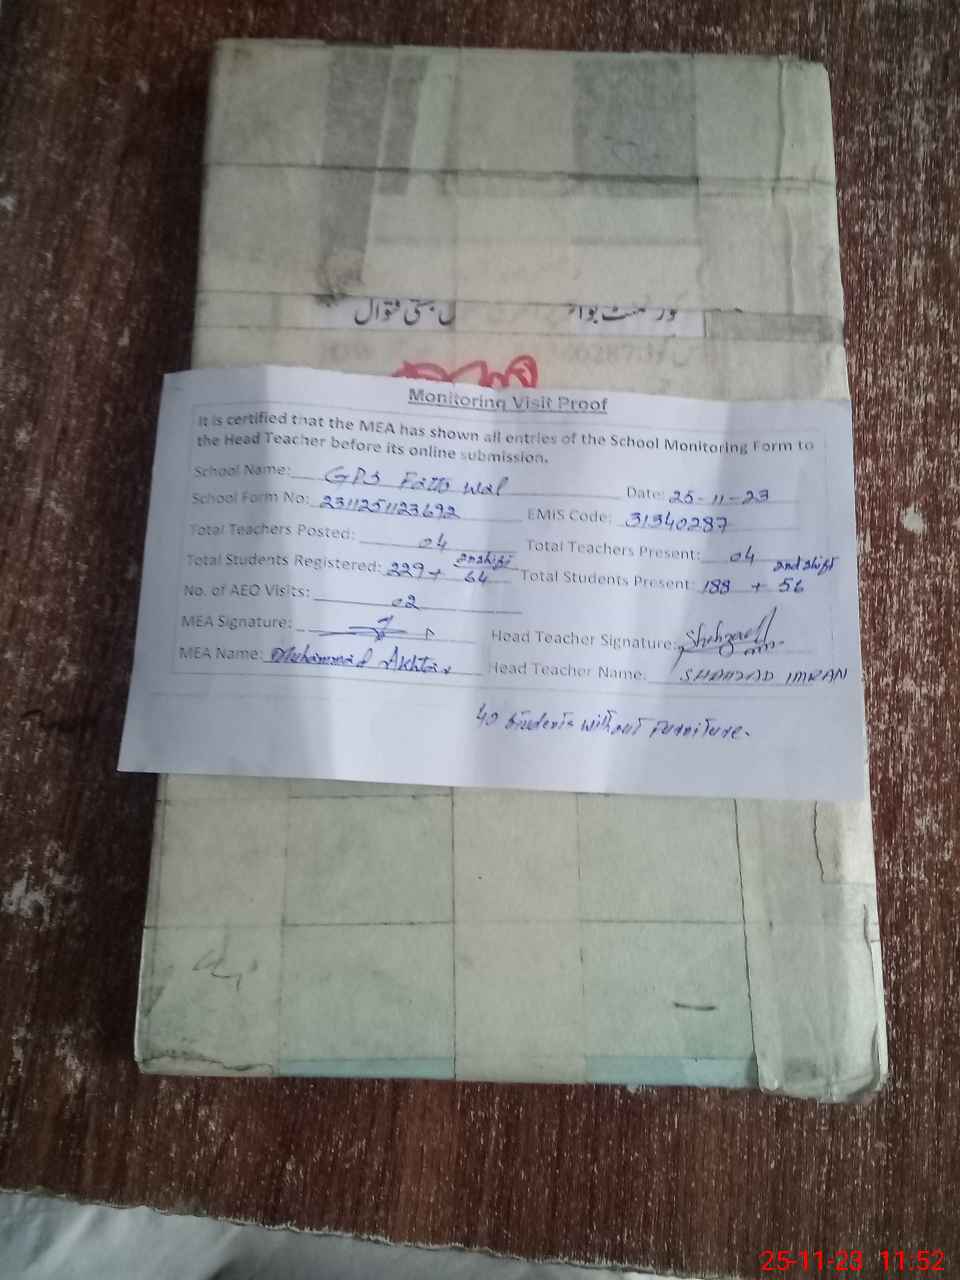 بستی فتوال
Monitoring Visit Proof
It is certified that the MEA has shown all entries of the School Monitoring Form to
the Head Teacher before its online submission.
School Name: GPS Fattu Wal Date: 25-11-23
School Form No: 2311251123692 EMIS Code: 31340287
Total Teachers Posted: 04 Total Teachers Present: 04
Total Students Registered: 229 + 2nd shift 64 Total Students Present: 188 + 2nd shift 56
No. of AEO Visits: 02
MEA Signature: Head Teacher Signature: Shahzad
MEA Name: Muhammad Akhtar Head Teacher Name. SHAHZAD IMRAN
40 Students without Furniture.
25-11-23 11:52